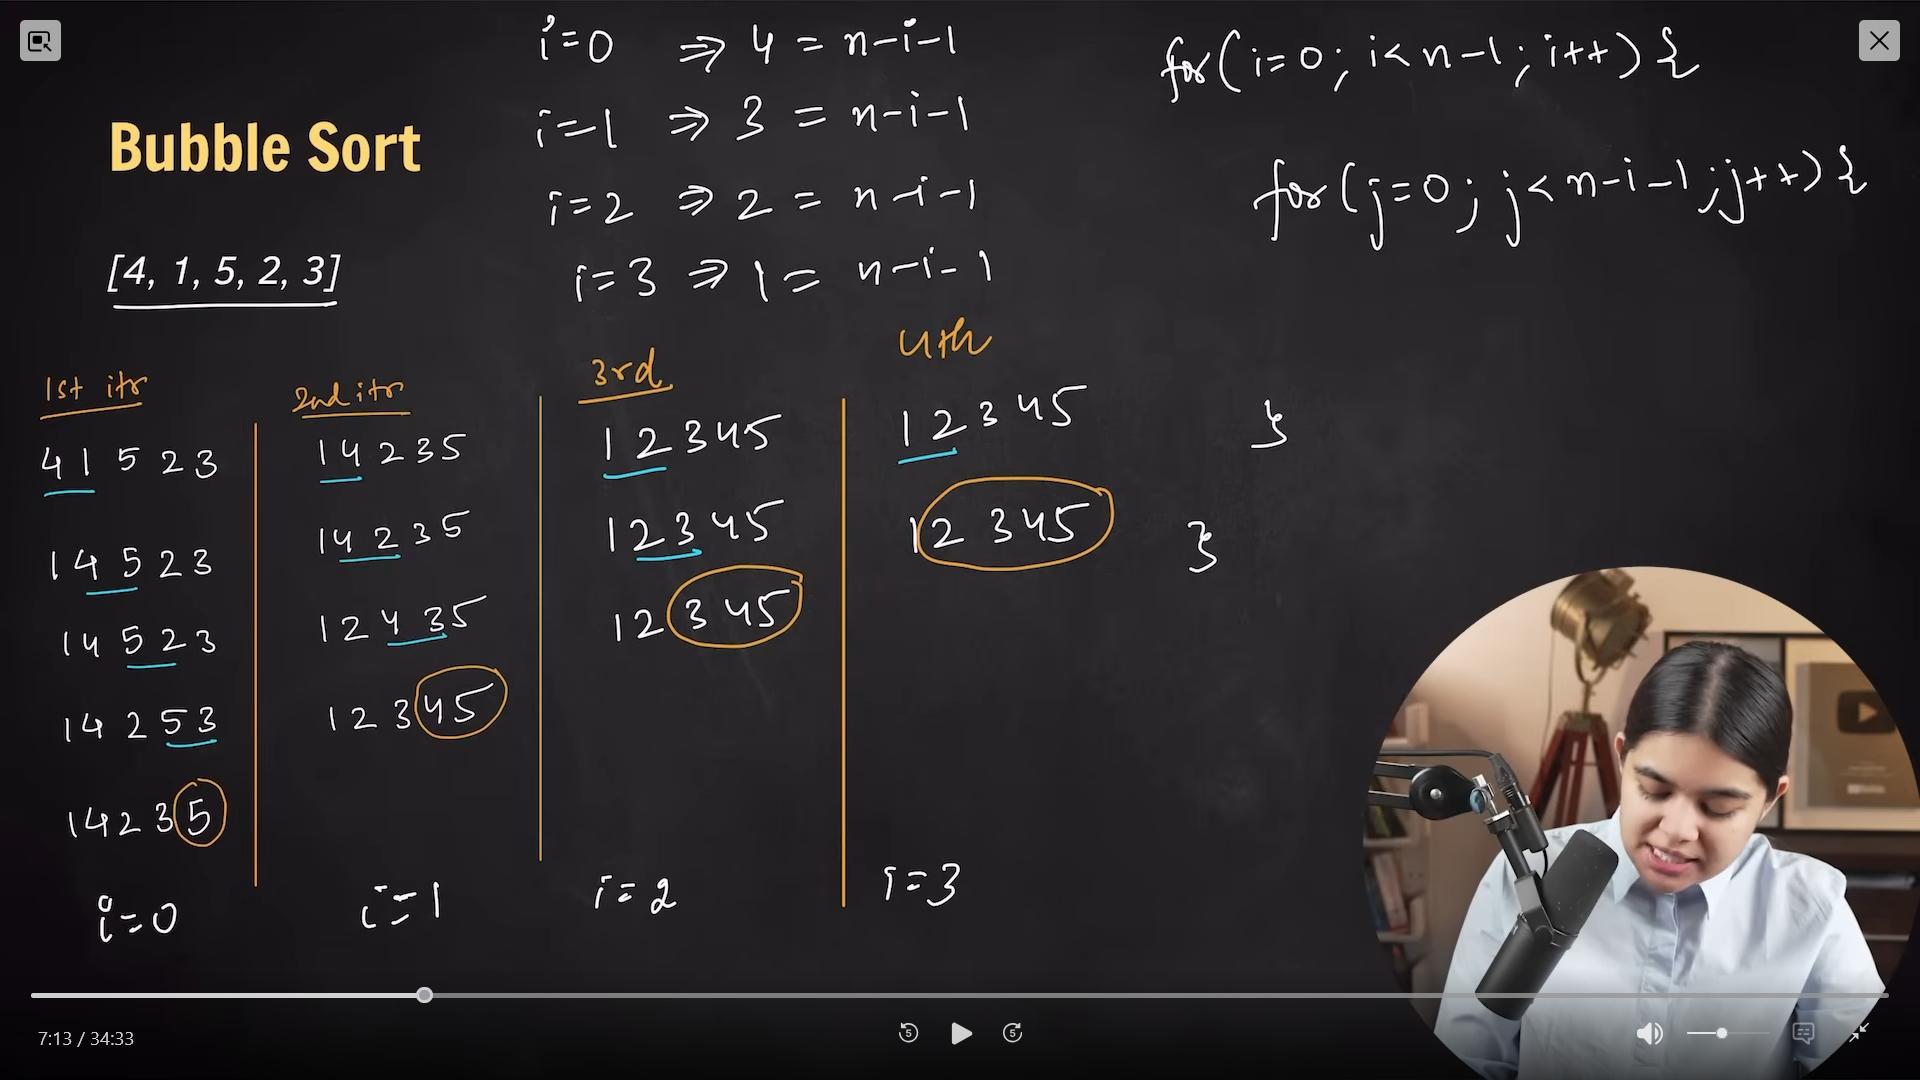 i=0 ⇒ 4 = n-i-1
i=1 ⇒ 3 = n-i-1
i=2 ⇒ 2 = n-i-1
i=3 ⇒ 1 = n-i-1
for(i=0; i<n-1; i++){
for(j=0; j<n-i-1; j++){
}
}
Bubble Sort
[4, 1, 5, 2, 3]
1st itr
4 1 5 2 3
1 4 5 2 3
1 4 5 2 3
1 4 2 5 3
1 4 2 3 5
i=0
2nd itr
1 4 2 3 5
1 4 2 3 5
1 2 4 3 5
1 2 3 4 5
i=1
3rd
1 2 3 4 5
1 2 3 4 5
1 2 3 4 5
i=2
4th
1 2 3 4 5
1 2 3 4 5
i=3
7:13 / 34:33
5
5